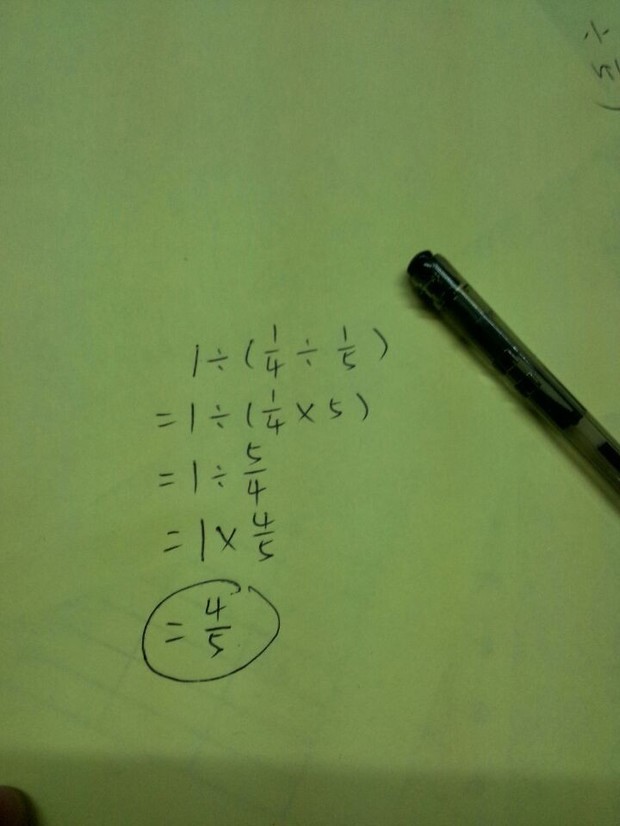 1÷(1/4÷1/5)
=1÷(1/4×5)
=1÷5/4
=1×4/5
=4/5
小